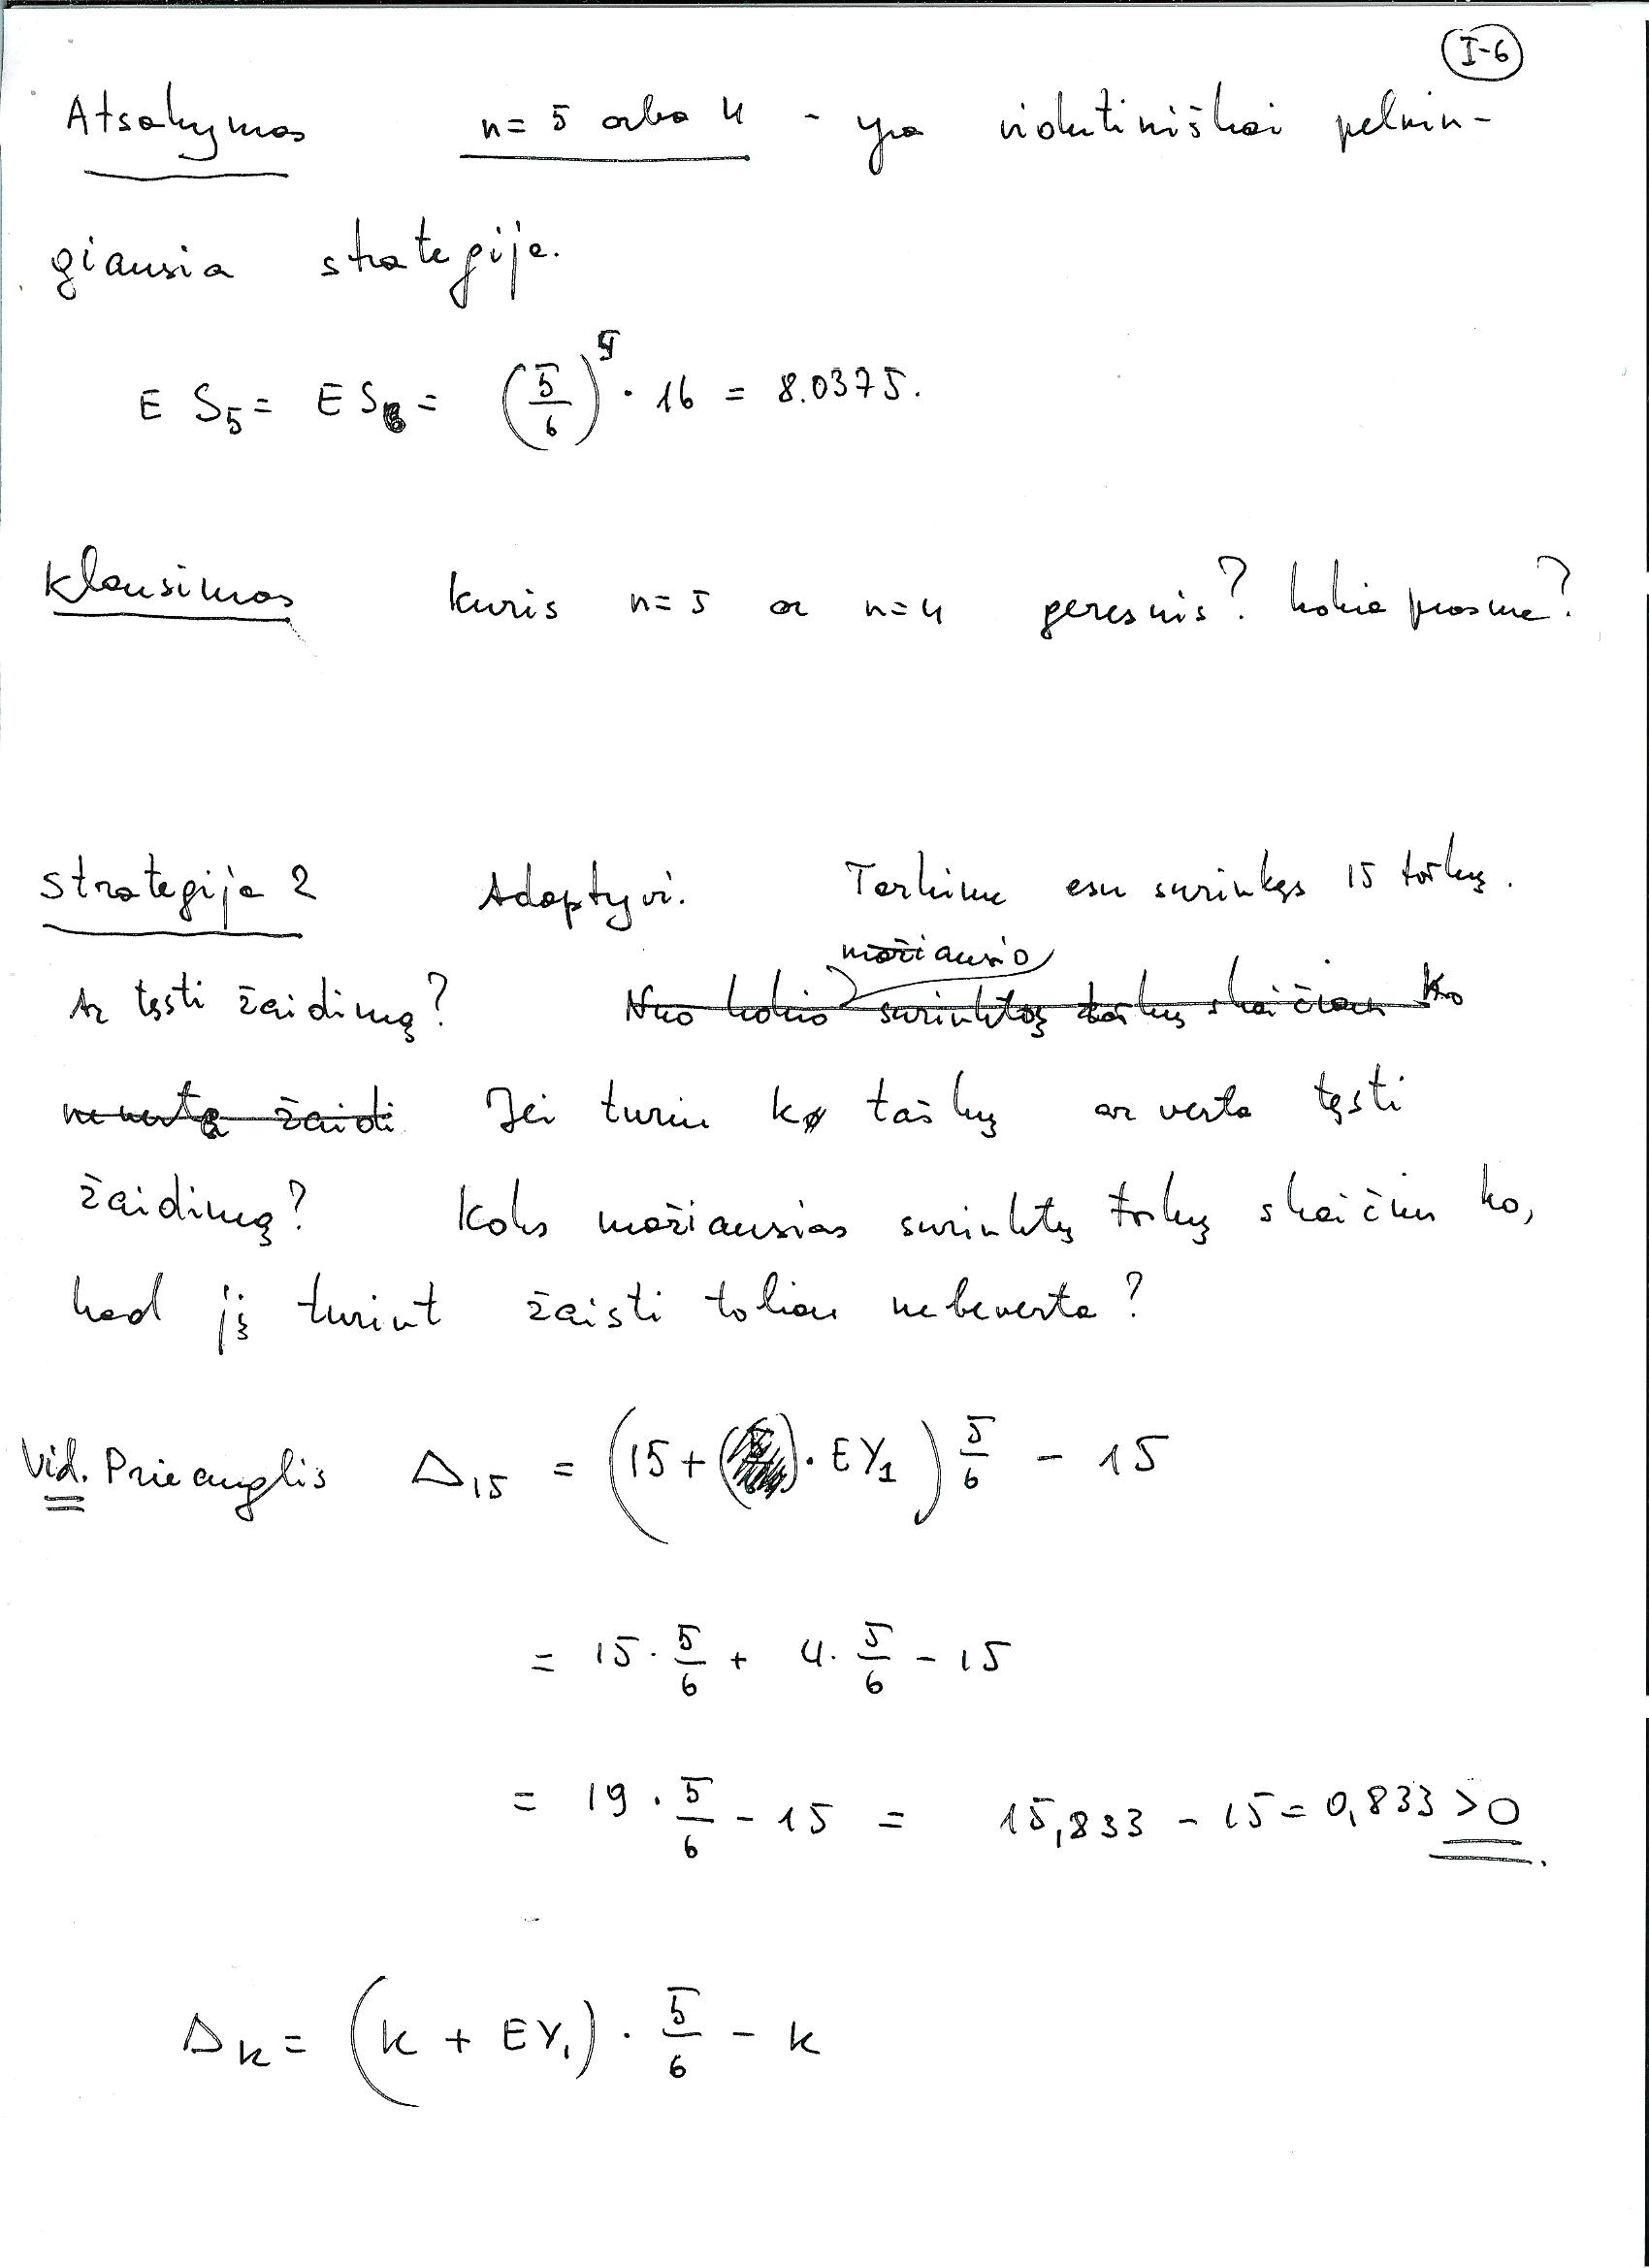 I-6
Atsakymas n= 5 arba 4 - yra vidutiniškai pelnin-
giausia strategija.
E S₅ = E S = (5/6)⁴ · 16 = 8.0375.
Klausimas kuris n=5 ar n=4 geresnis? kokia prasme?
Strategija 2 Adaptyvi. Tarkime esu surinkęs 15 taškų.
mažiausio
Ar tęsti žaidimą? Nuo kokio surinktų taškų skaičiaus ko
neverta žaidi Jei turiu k taškų ar verta tęsti
žaidimą? Koks mažiausias surinktų taškų skaičius ko,
kad jį turint žaisti toliau nebeverta?
Vid. Prieauglis Δ₁₅ = (15 + · EY₁) 5/6 - 15
= 15 · 5/6 + 4 · 5/6 - 15
= 19 · 5/6 - 15 = 15,833 - 15 = 0,833 > 0.
Δₖ = (k + EY₁) · 5/6 - k